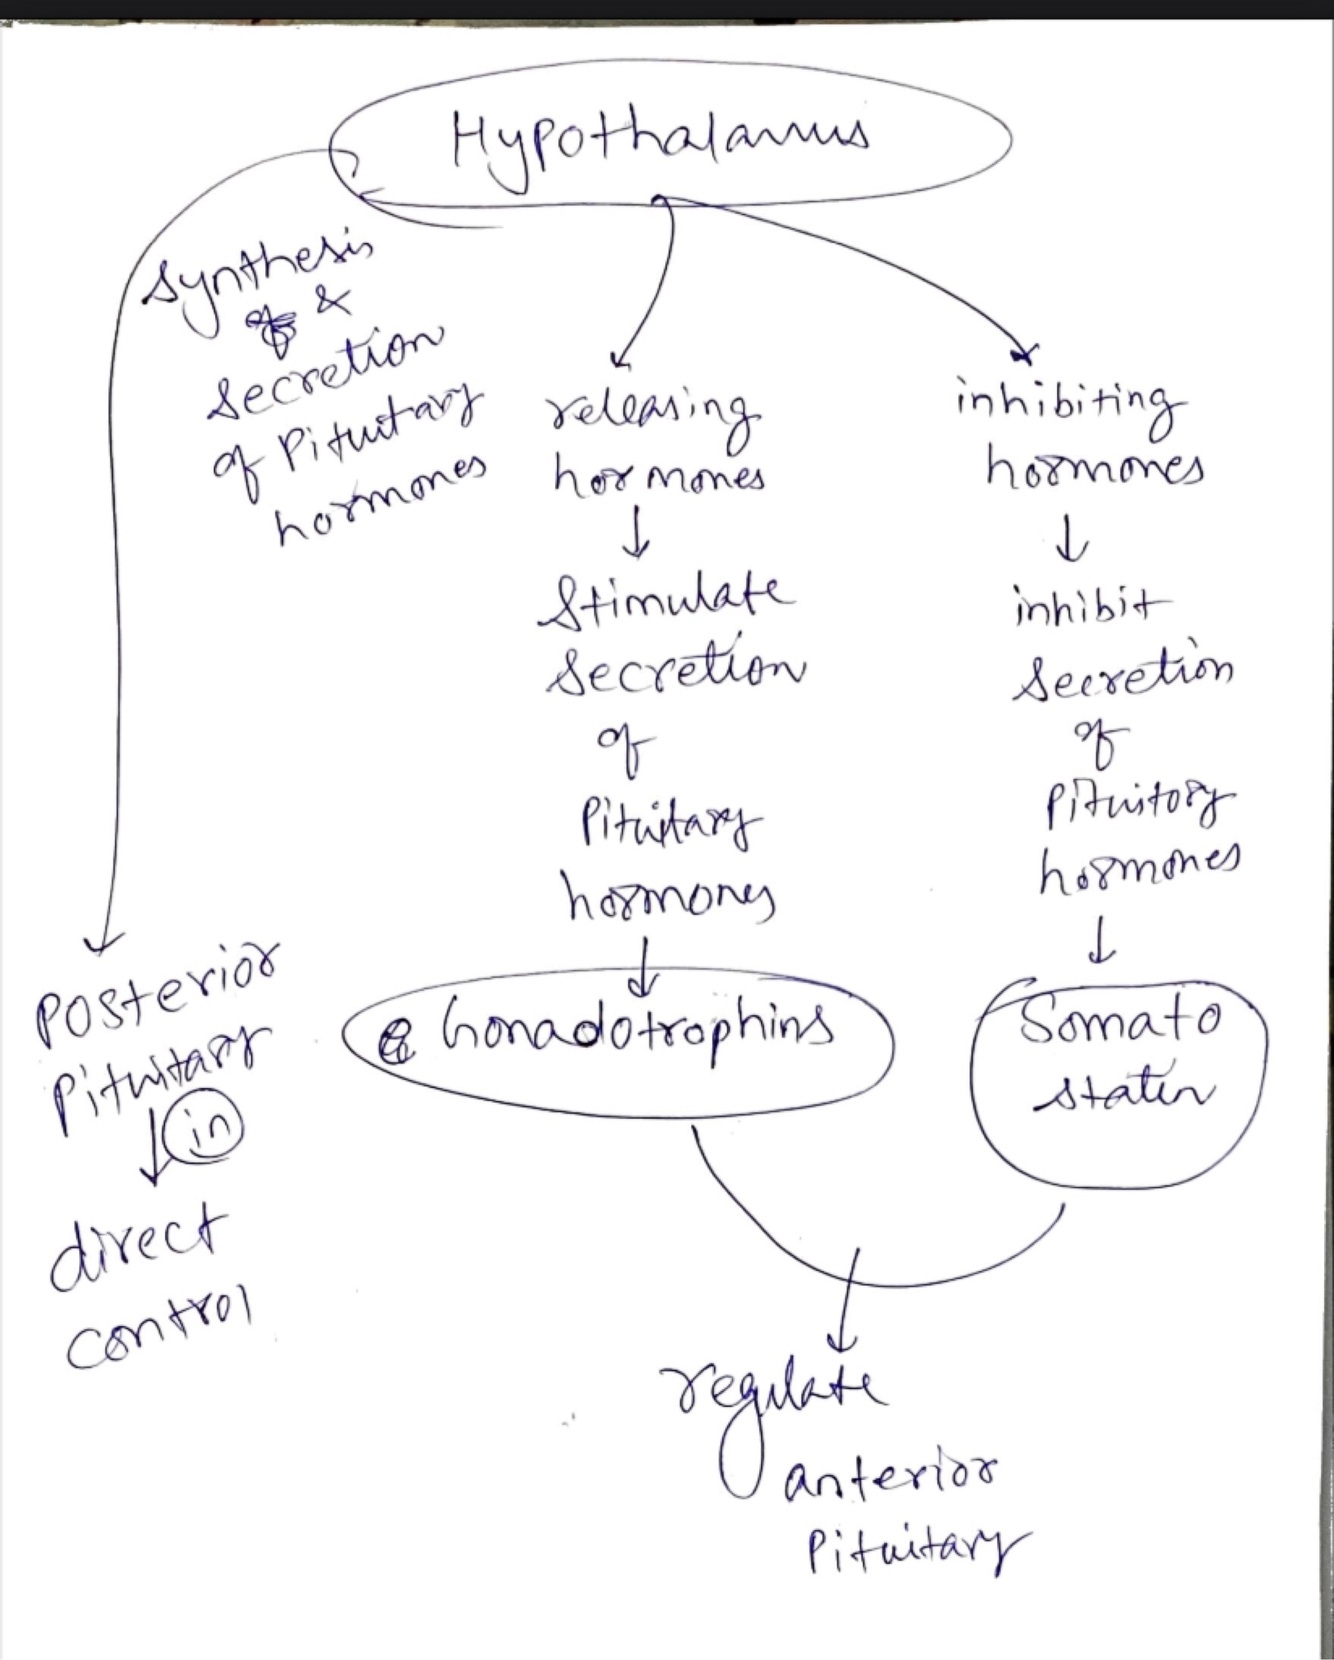 Hypothalamus
Synthesis
&
Secretion
of Pituitary
hormones
releasing
hormones
Stimulate
Secretion
of
Pituitary
hormones
Gonadotrophins
inhibiting
hormones
inhibit
Secretion
of
Pituitory
hormones
Somato
statin
Posterior
Pituitary
in
direct
control
regulate
anterior
Pituitary